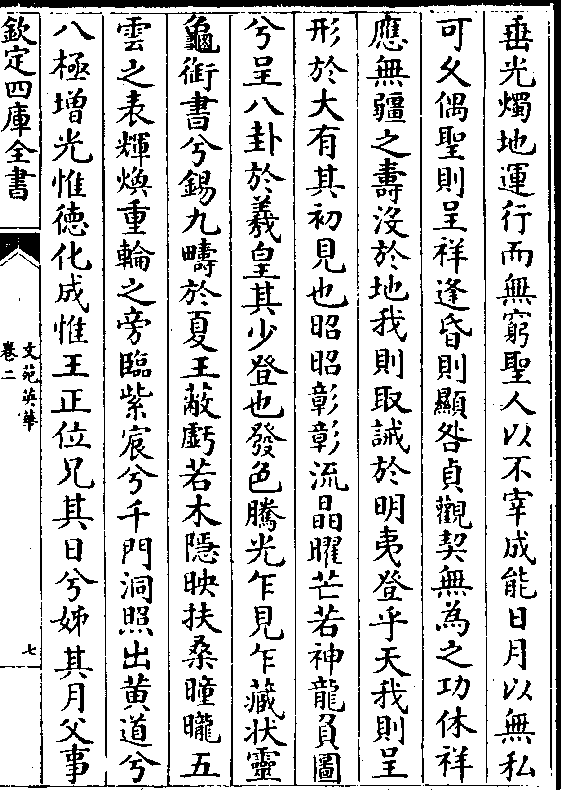 垂光燭地運行而無窮聖人以不宰成能日月以無私
可久偶聖則呈祥逢昏則顯咎貞觀契無為之功休祥
應無疆之壽沒於地我則取誡於明夷登乎天我則呈
形於大有其初見也昭昭彰彰流晶曜芒若神龍負圖
兮呈八卦於羲皇其少登也發色騰光乍見乍藏狀靈
龜銜書兮錫九疇於夏王蔽虧若木隱映扶桑曈曨五
雲之表輝煥重輪之旁臨紫宸兮千門洞照出黄道兮
八極增光惟德化成惟王正位兄其日兮姊其月父事
欽定四庫全書
文苑英華
卷二
七